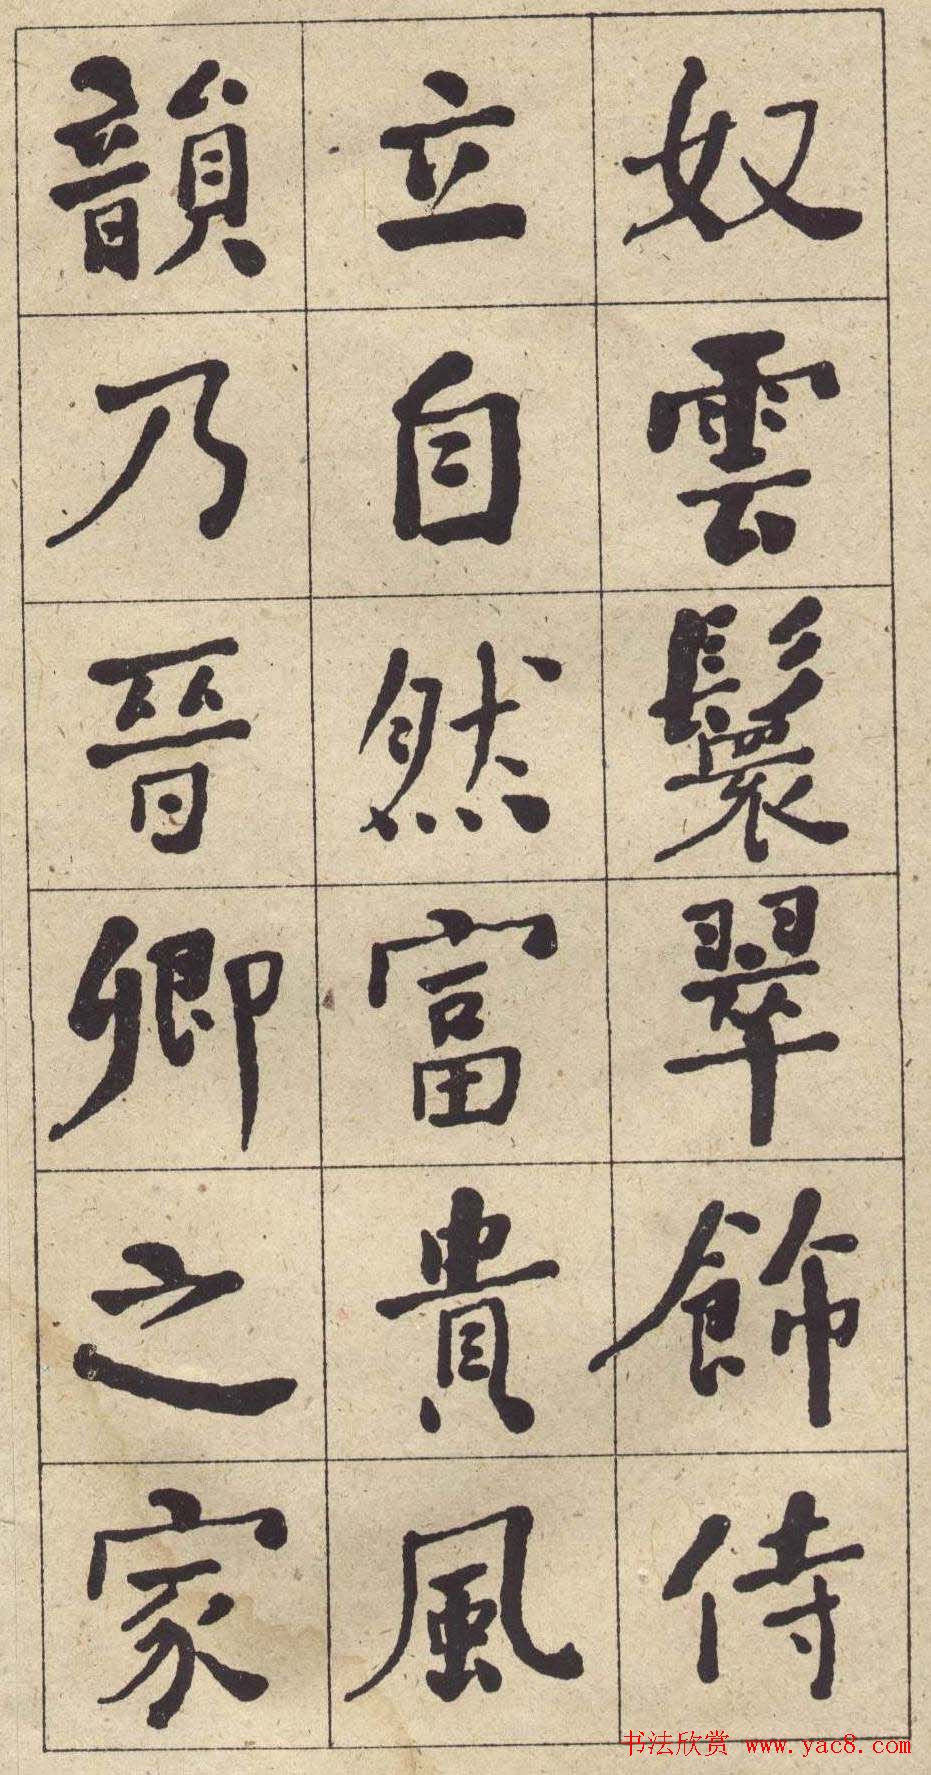 奴雲鬟翠飾侍
立自然富貴風
韻乃晉卿之家
书法欣赏 www.yac8.com